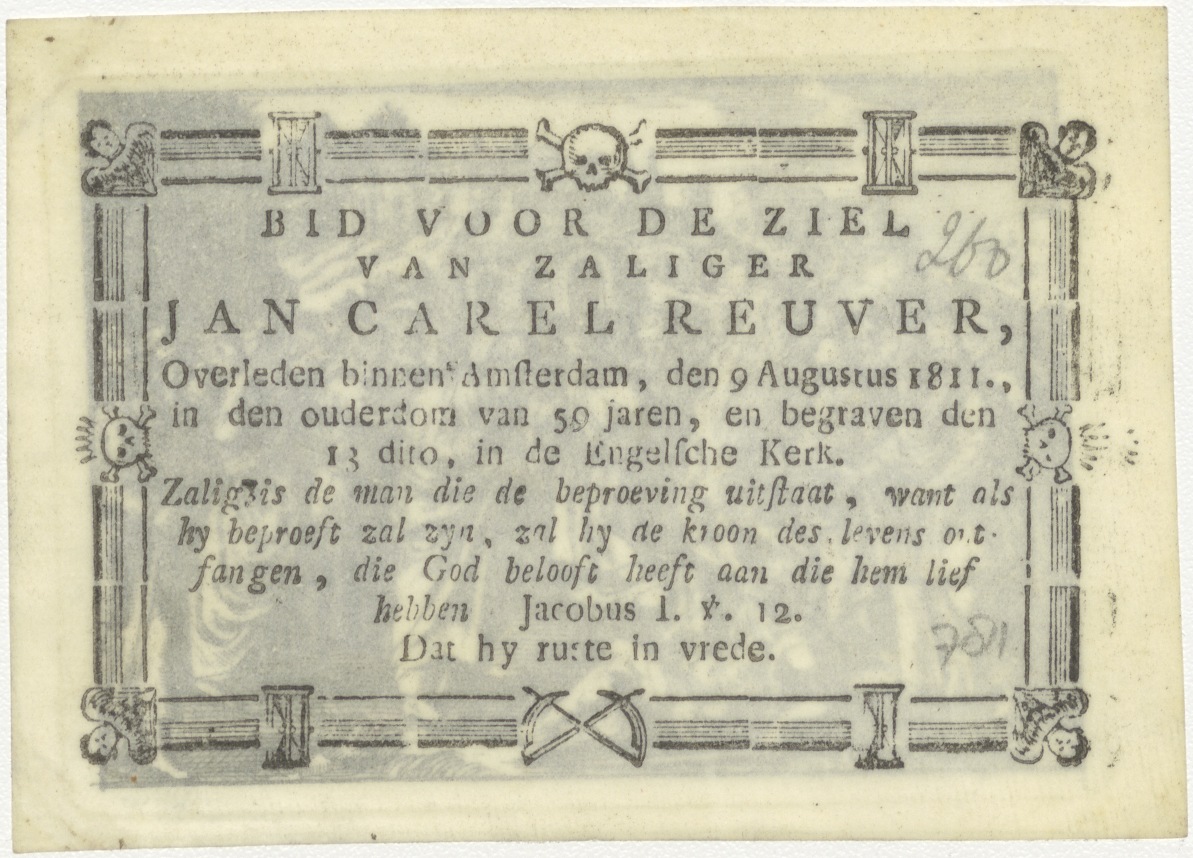 BID VOOR DE ZIEL
260
VAN ZALIGER
JAN CAREL REUVER,
Overleden binnen Amſterdam, den 9 Augustus 1811.,
in den ouderdom van 59 jaren, en begraven den
13 dito, in de Engelſche Kerk.
Zalig is de man die de beproeving uitſtaat, want als
hy beproeft zal zyn, zal hy de kroon des levens ont-
fangen, die God belooft heeft aan die hem lief
hebben Jacobus 1. ℣. 12.
Dat hy ruste in vrede.